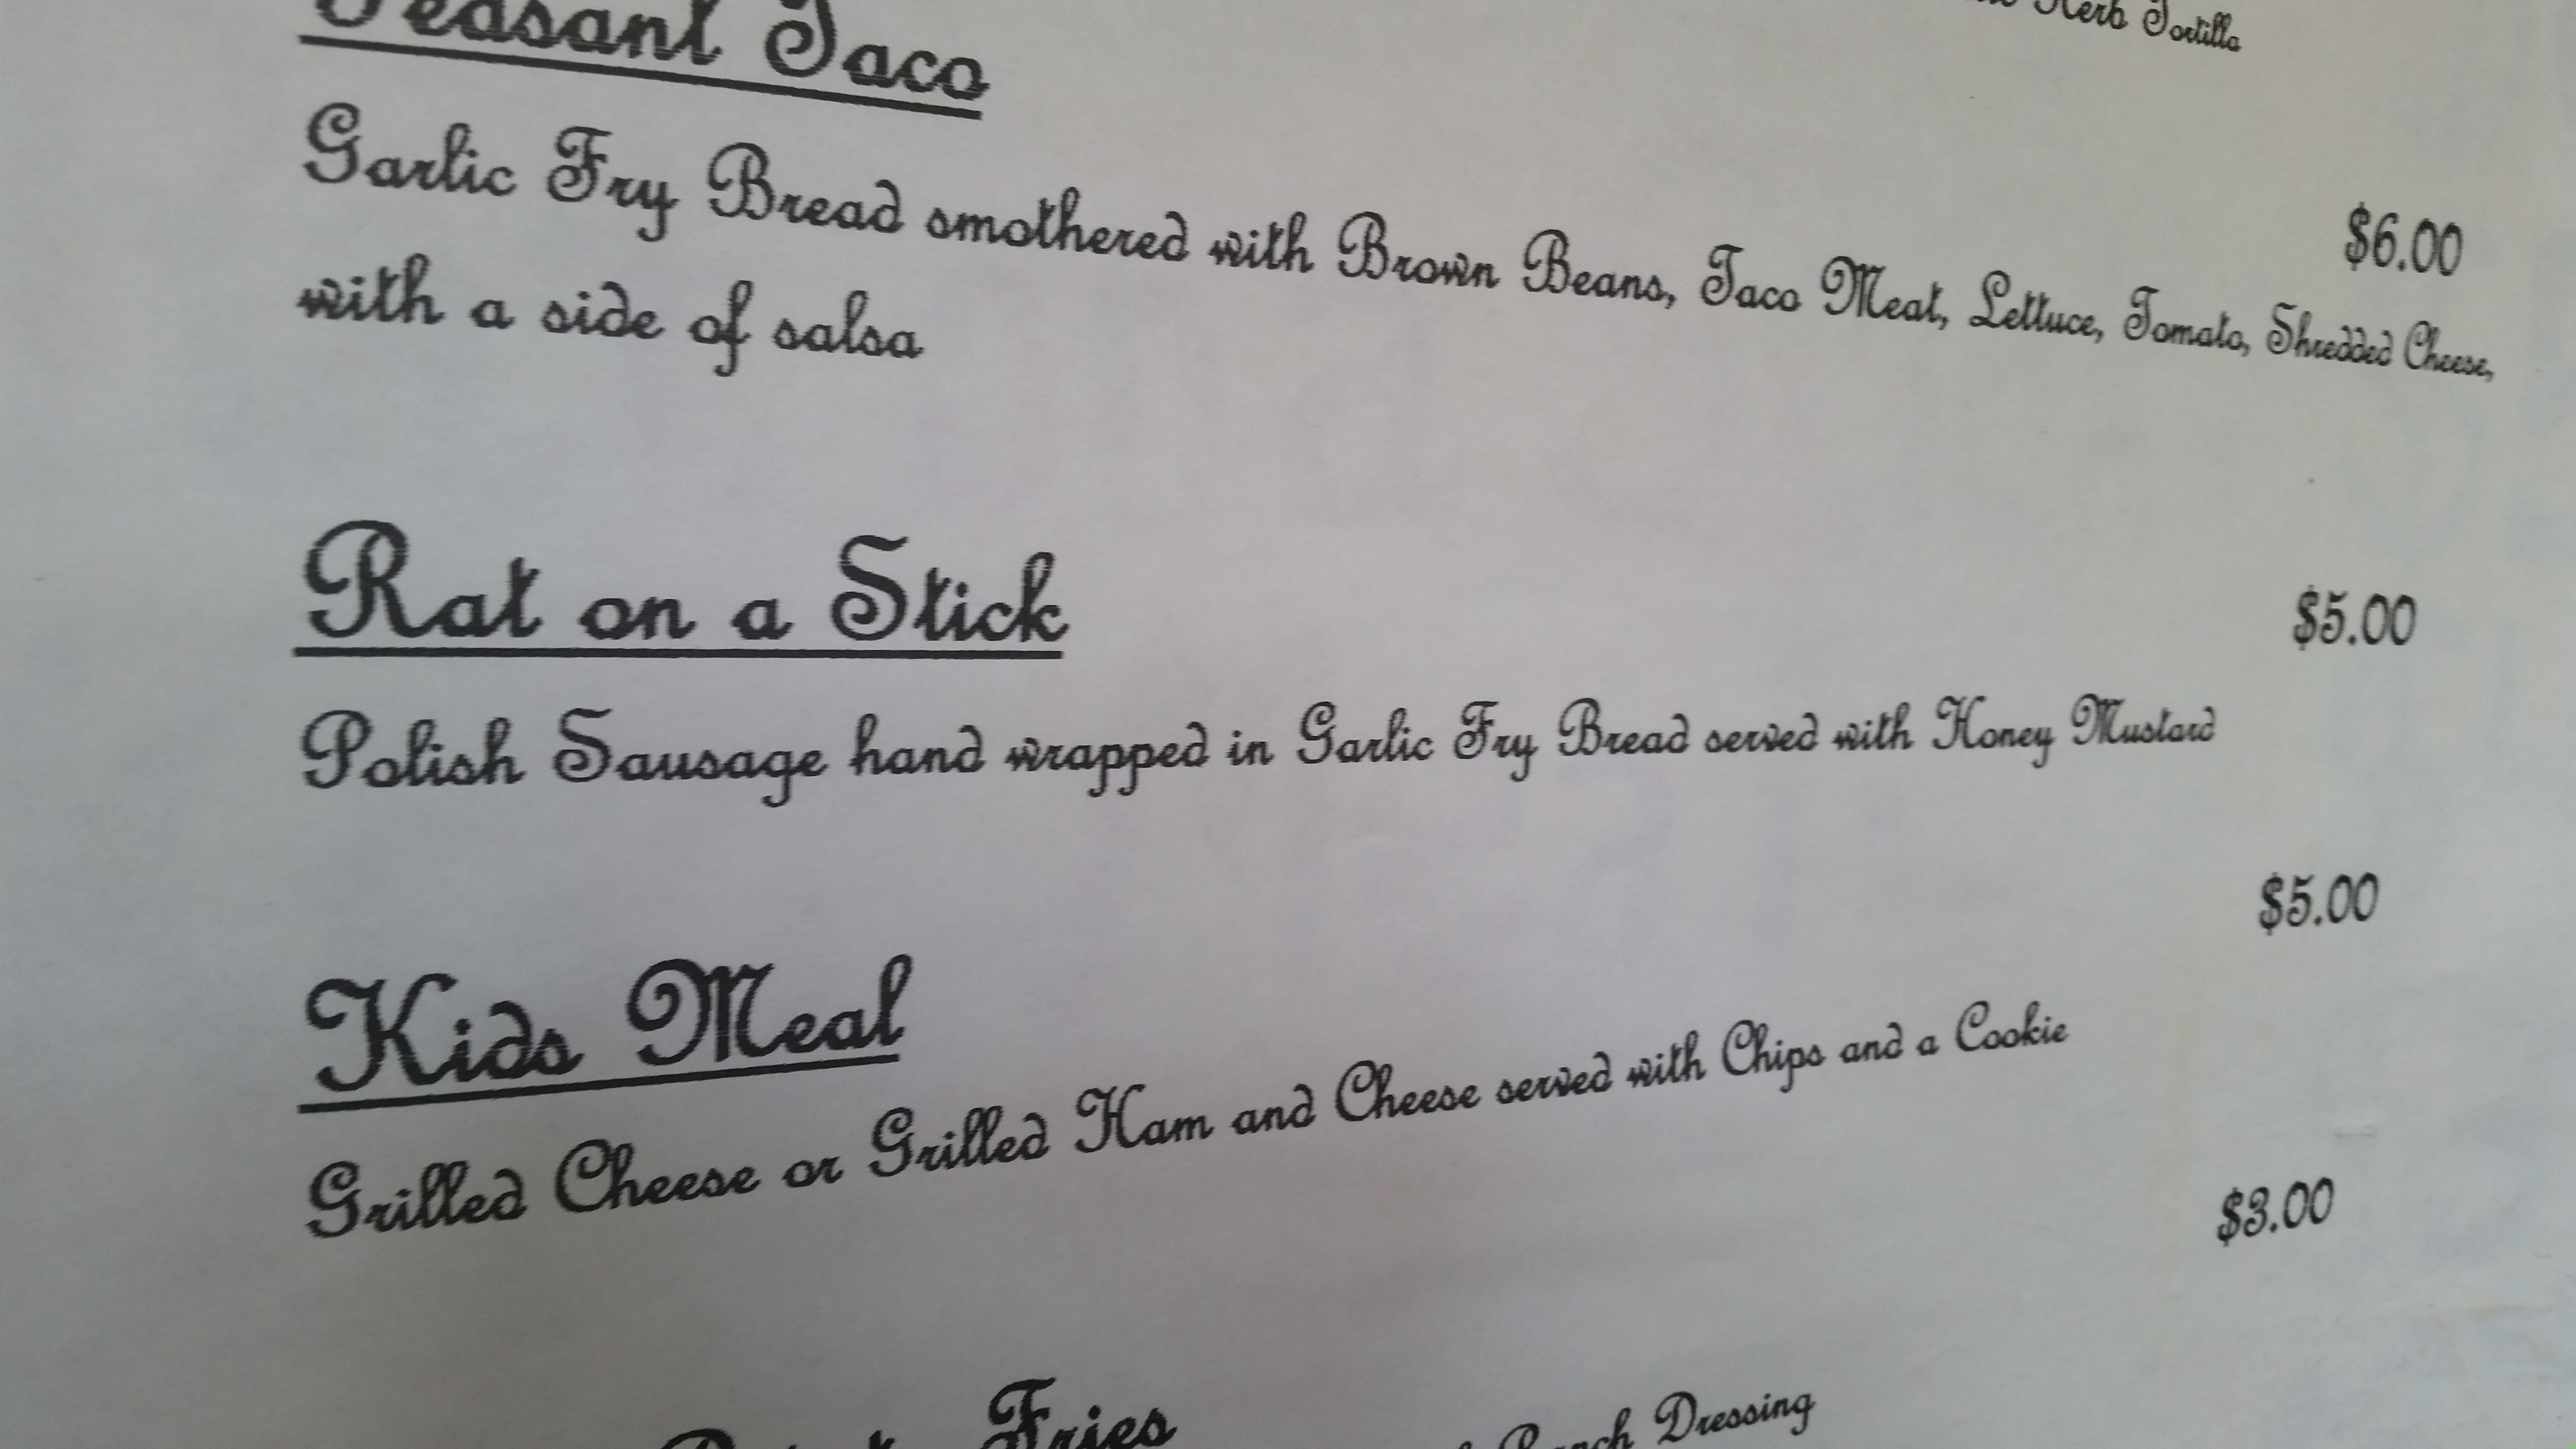 Herb Tortilla
Peasant Taco
$6.00
Garlic Fry Bread smothered with Brown Beans, Taco Meat, Lettuce, Tomato, Shredded Cheese,
with a side of salsa
Rat on a Stick
$5.00
Polish Sausage hand wrapped in Garlic Fry Bread served with Honey Mustard
Kids Meal
$5.00
Grilled Cheese or Grilled Ham and Cheese served with Chips and a Cookie
$3.00
Fries
Ranch Dressing